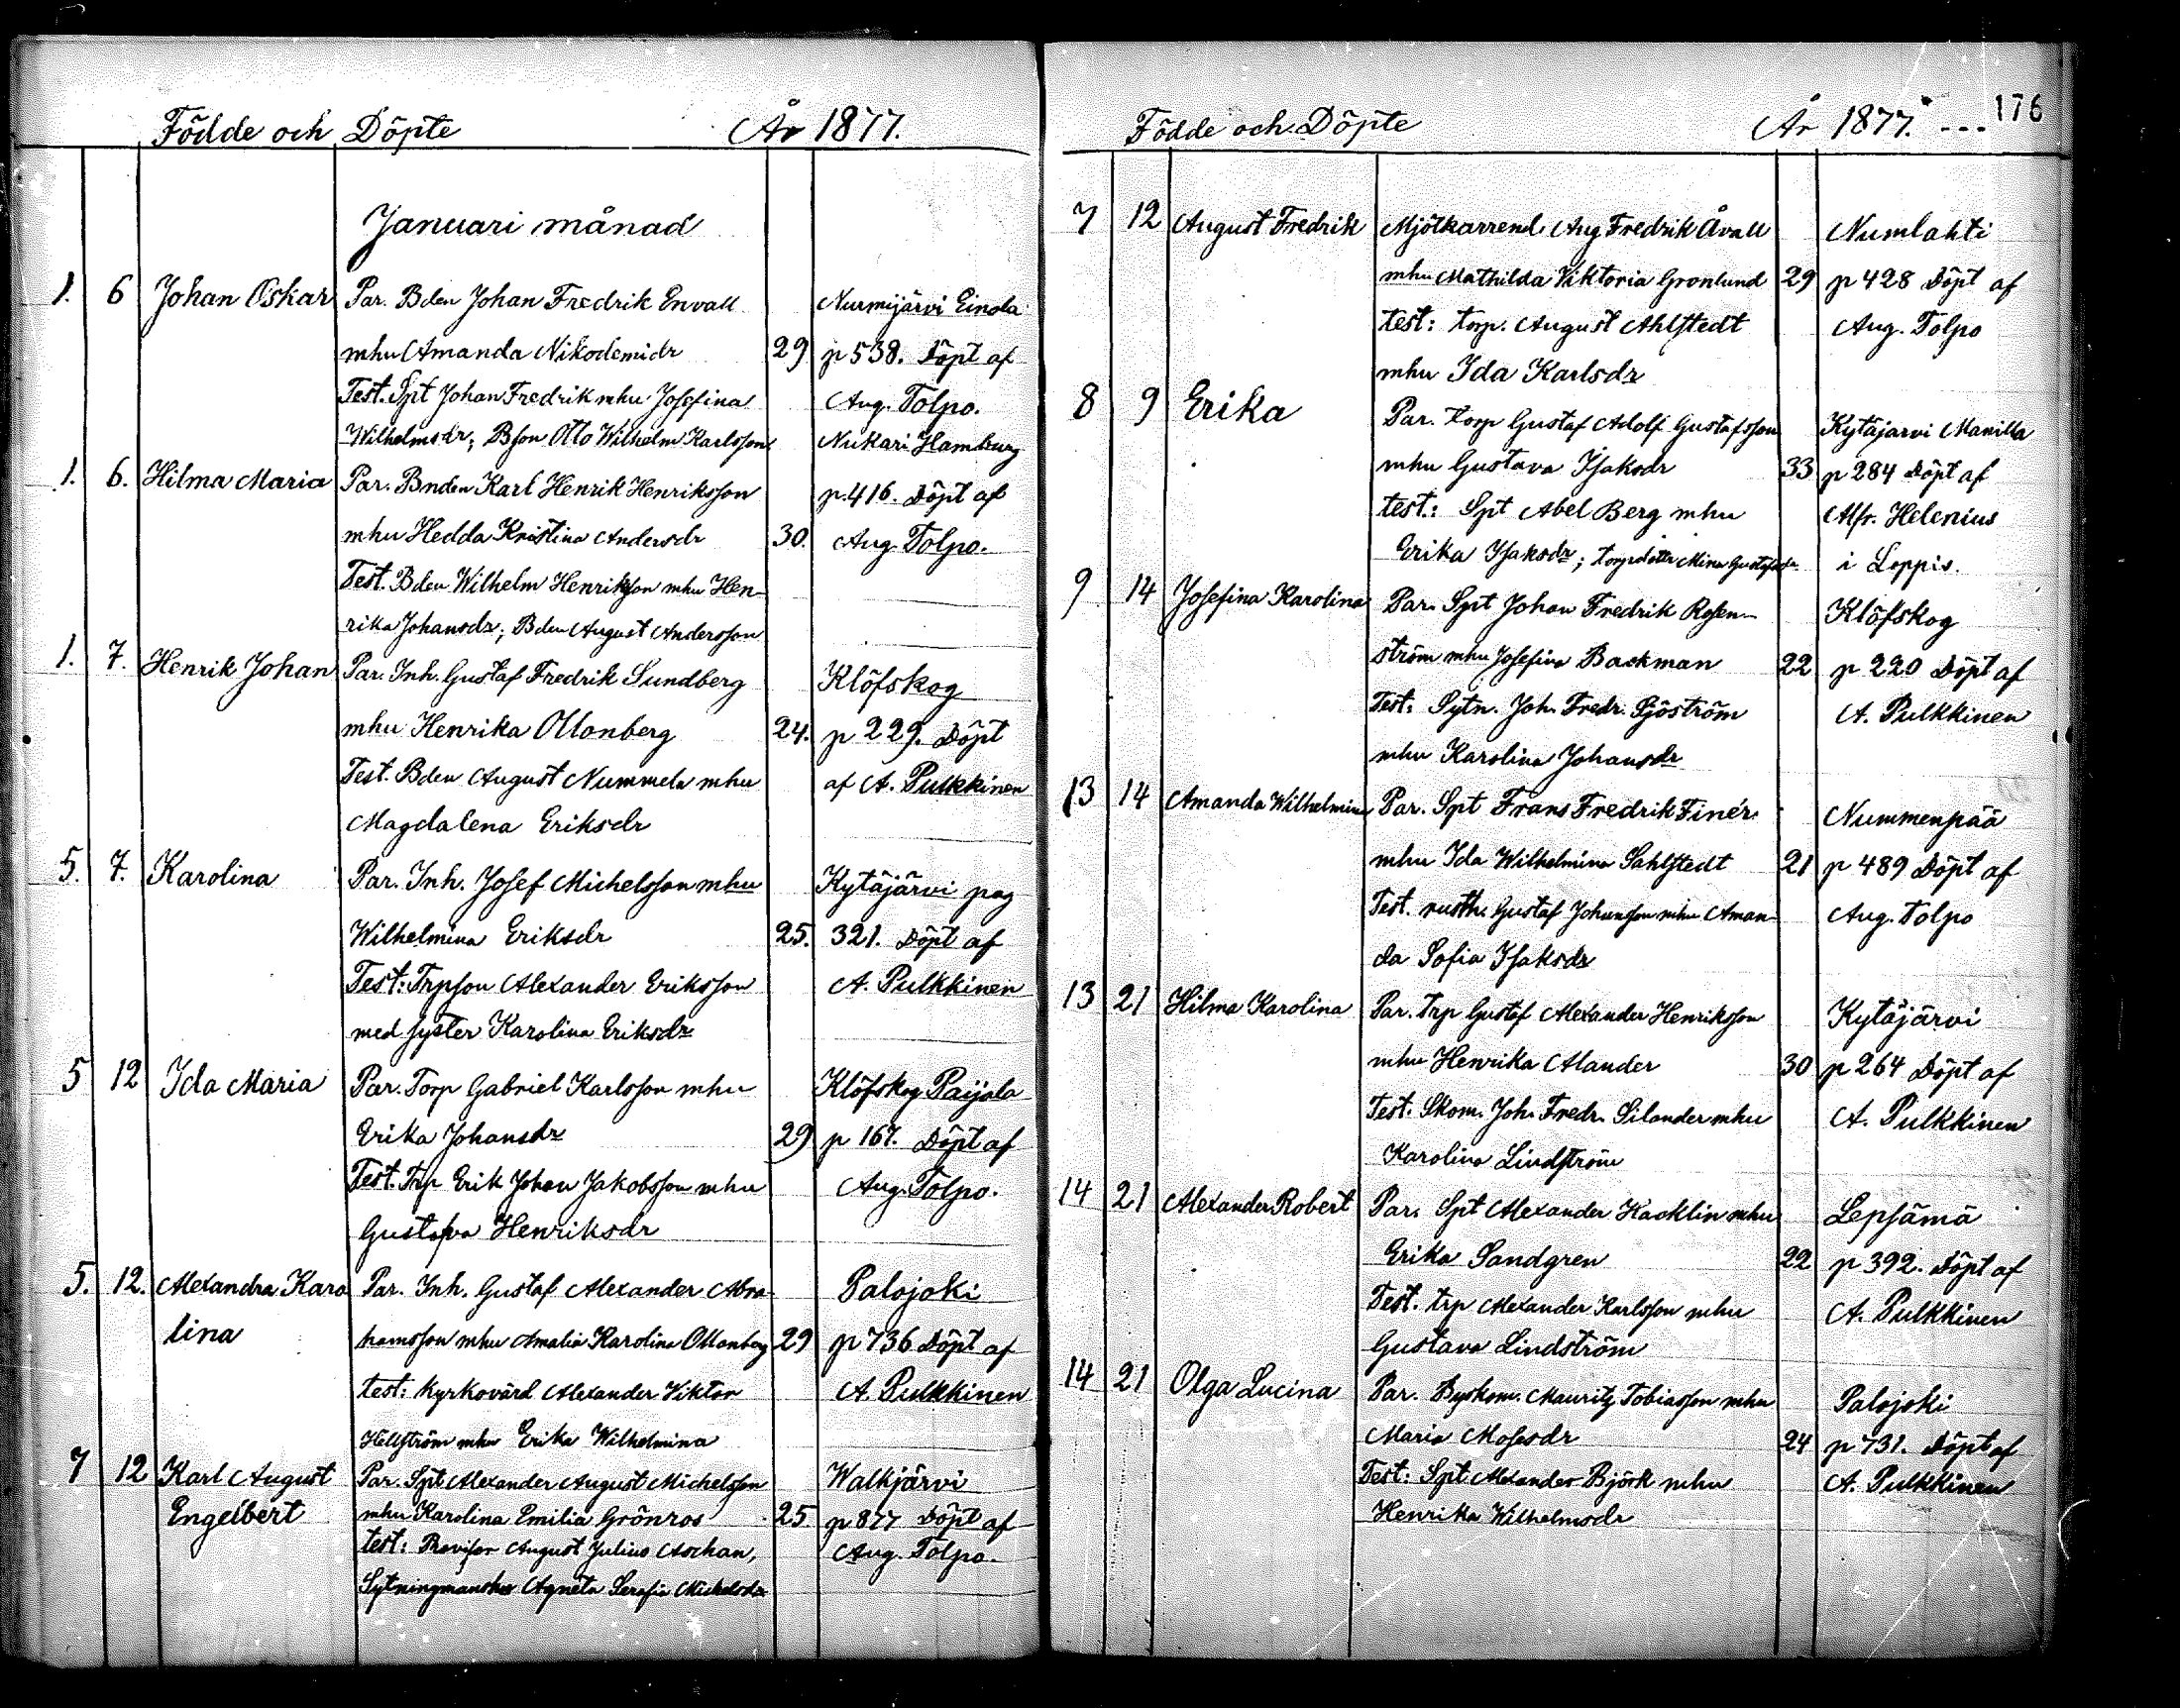 Födde och Döpte År 1877.
Januari månad
1. 6 Johan Oskar Par. Bden Johan Fredrik Envall Nurmijärvi Einola
mhu Amanda Nikodemidr 29 p 538. Döpt af
Test. Spt Johan Fredrik mhu Josefina Aug. Tolpo.
Wilhelmsdr; Bson Otto Wilhelm Karlsson Nukari Hamburg
1. 6. Hilma Maria Par. Bnden Karl Henrik Henriksson p. 416. Döpt af
mhu Hedda Kristina Andersdr 30. Aug. Tolpo.
Test. Bden Wilhelm Henriksson mhu Hen-
rika Johansdr; Bden August Andersson
1. 7. Henrik Johan Par. Inh. Gustaf Fredrik Sundberg Klöfskog
mhu Henrika Ollonberg 24. p 229. Döpt
Test. Bden August Nummela mhu af A. Pulkkinen
Magdalena Eriksdr
5. 7. Karolina Par. Inh. Josef Michelsson mhu Kytäjärvi pag
Wilhelmina Eriksdr 25. 321. Döpt af
Test: Trpson Alexander Eriksson A. Pulkkinen
med syster Karolina Eriksdr
5 12 Ida Maria Par. Torp Gabriel Karlsson mhu Klöfskog Paijala
Erika Johansdr 29 p 167. Döpt af
Test. Trp Erik Johan Jakobsson mhu Aug. Tolpo.
Gustafva Henriksdr
5. 12. Alexandra Karo Par. Inh. Gustaf Alexander Abra- Palojoki
lina hamsson mhu Amalia Karolina Ollonberg 29 p 736 Döpt af
test: Kyrkovärd Alexander Viktor A. Pulkkinen
Hellström mhu Erika Wilhelmina
7 12 Karl August Par. Spt Alexander August Michelsson Walkjärvi
Engelbert mhu Karolina Emilia Grönroos 25. p 877 Döpt af
test: Provisor August Julius Aschan, Aug. Tolpo.
Sytningmanska Agneta Serafia Michelsdr
Födde och Döpte År 1877. --- 176
7 12 August Fredrik Mjölkarrend. Aug Fredrik Åvall Numlahti
mhu Mathilda Viktoria Gronlund 29 p 428 Döpt af
test: torp. August Ahlstedt Aug. Tolpo
mhu Ida Karlsdr
8 9 Erika Par. torp Gustaf Adolf Gustafsson Kytäjarvi Manilla
mhu Gustava Isaksdr 33 p 284 Döpt af
test: Spt Abel Berg mhu Alfr. Helenius
Erika Isaksdr; torpdotter Mina Gustafsdr i Loppis.
9 14 Josefina Karolina Par. Spt Johan Fredrik Rosen- Klöfskog
ström mhu Josefina Backman 22 p 220 Döpt af
Test: Sytn. Joh. Fredr. Sjöström A. Pulkkinen
mhu Karolina Johansdr
13 14 Amanda Wilhelmina Par. Spt Frans Fredrik Finér Nummenpää
mhu Ida Wilhelmina Sahlstedt 21 p 489 Döpt af
Test. rusth. Gustaf Johansson mhu Aman- Aug. Tolpo
da Sofia Isaksdr
13 21 Hilma Karolina Par. Trp Gustaf Alexander Henriksson Kytäjärvi
mhu Henrika Alander 30 p 264 Döpt af
Test. Skom. Joh. Fredr. Silander mhu A. Pulkkinen
Karolina Lindström
14 21 Alexander Robert Par. Spt Alexander Hacklin mhu Lepsämä
Erika Sandgren 22 p 392. Döpt af
Test. trp Alexander Karlsson mhu A. Pulkkinen
Gustava Lindström
14 21 Olga Lucina Par. Byskom. Mauritz Tobiasson mhu Palojoki
Maria Mosesdr 24 p 731. Döpt af
Test: Spt Alexander Björk mhu A. Pulkkinen
Henrika Wilhelmsdr